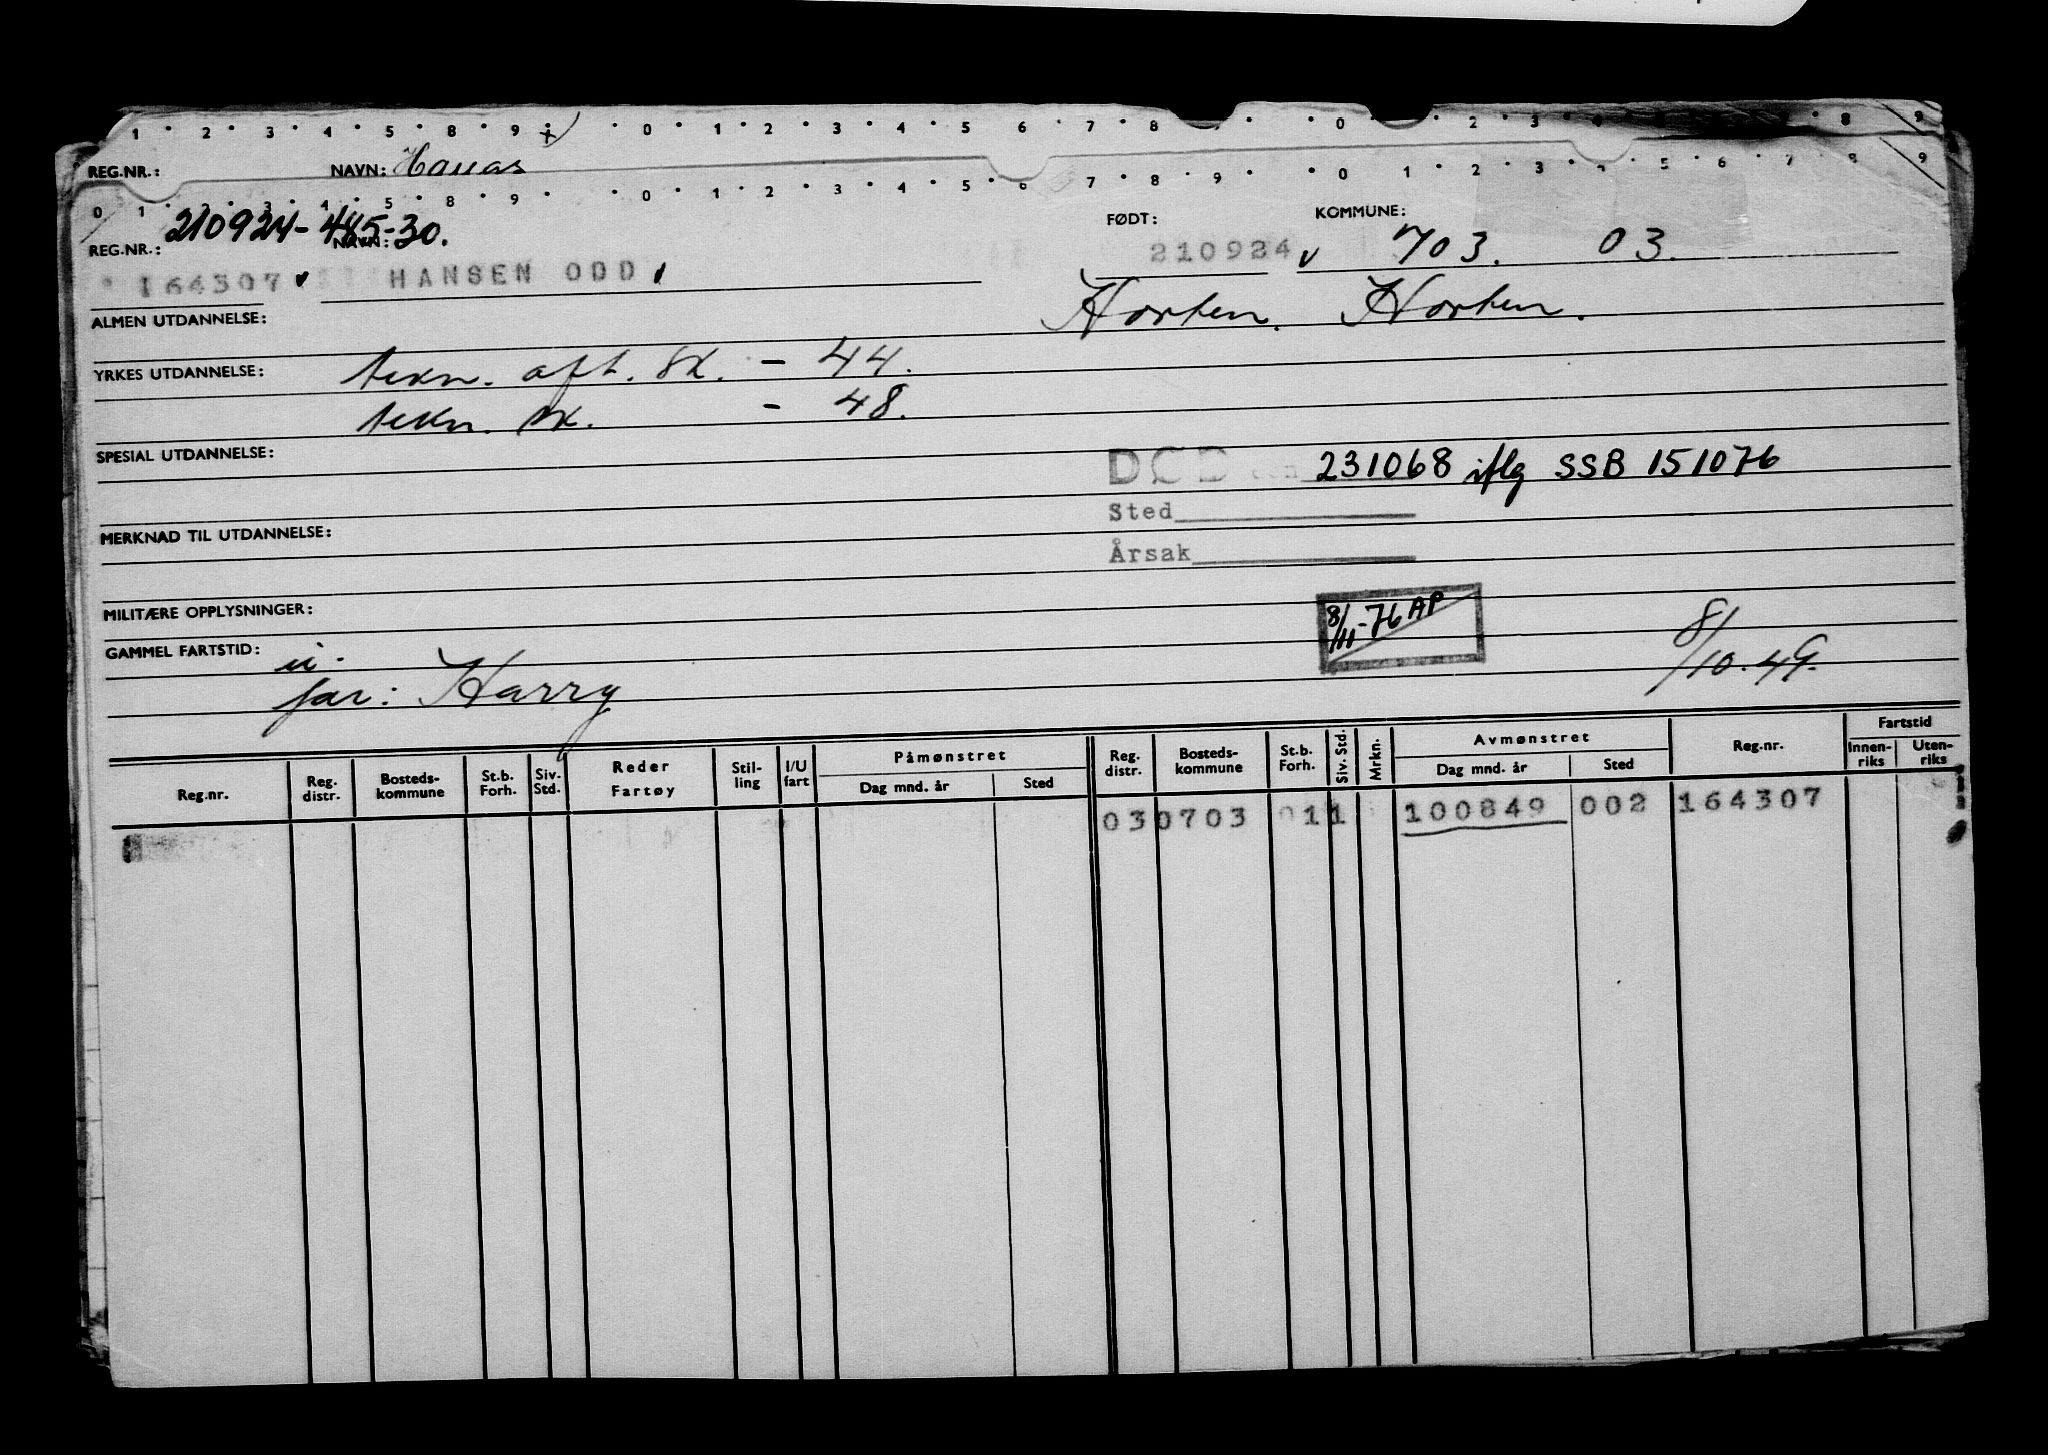 1 2 3 4 5 8 9 0 1 2 3 4 5 6 7 8 0 2 3 8 9
REG.NR.: NAVN: Hauas
0 1 2 3 4 5 8 9 0 1 2 3 4 5 6 7 8 9 0 1 2 3 5 6 7 8 9
REG.NR.: 210924-485-30. NAVN: FØDT: KOMMUNE:
164307 HANSEN ODD 210924 v 703. 03.
ALMEN UTDANNELSE: Horten. Horten.
YRKES UTDANNELSE: tekn. aft. sk. - 44.
tekn. sk. - 48.
SPESIAL UTDANNELSE: DØD den 231068 iflg SSB 151076
Sted
MERKNAD TIL UTDANNELSE: Årsak
MILITÆRE OPPLYSNINGER: 8/11-76 AP
GAMMEL FARTSTID: u. 8/10.49.
far: Harry
Reg.nr. Reg. distr. Bosteds-kommune St.b. Forh. Siv. Std. Reder Fartøy Stil-ling I/U fart Påmønstret Dag mnd. år Sted Reg. distr. Bosteds-kommune St.b. Forh. Siv. Std. Mrkn. Avmønstret Dag mnd. år Sted Reg.nr. Fartstid Innen-riks Uten-riks
03 0703 01 1 100849 002 164307